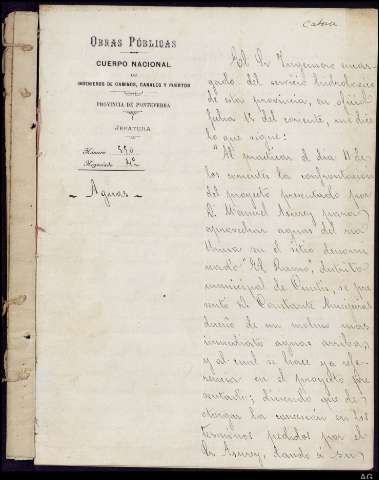 OBRAS PÚBLICAS
CUERPO NACIONAL
DE
INGENIEROS DE CAMINOS, CANALES Y PUERTOS
PROVINCIA DE PONTEVEDRA
JEFATURA
Número 590
Negociado 4º
Aguas
El Sr Ingeniero encar-
gado del servicio hidrologico
de esta provincia, en oficio
fecha 15 del corriente, me dice
lo que sigue:
"Al practicar el dia 11 de
los corrientes la confrontación
del proyecto presentado por
D. Manuel para
aprovechar aguas del rio
Umia en el sitio denomi-
nado "El Ramo", distrito
municipal de Cuntis, se pre-
sentó D. Constante
dueño de un molino mas
inmediato aguas arriba
y al cual se hace ya refe-
rencia en el proyecto pre-
sentado; diciendo que de
otorgar la concesión en los
terminos pedidos por el
Sr. dando á su
AG